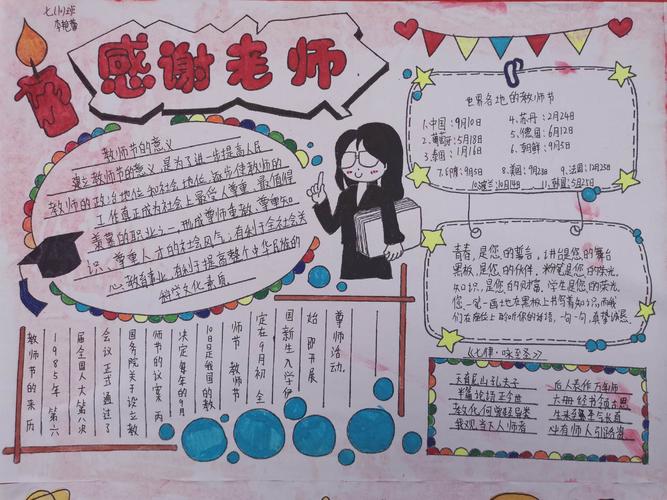 七(10)班
李艳蕾
感谢老师
教师节的意义
建立教师节的意义,是为了进步提高人民
教师的政治地位和社会地位,逐步使教师的
工作真正成为社会上最受人尊重、最值得
羡慕的职业之一,形成尊师重教、尊重知
识、尊重人才的社会风气;有利于全社会关
心教育事业,有利于提高整个中华民族的
科学文化素质
世界各地的教师节
1.中国:9月10日
4.苏丹:2月24日
2.葡萄牙:5月18日
5.德国:6月12日
3.泰国:1月16日
6.朝鲜:9月5日
7.印度:9月5日
8.美国:9月28日
9.法国:12月25日
10.波兰:10月14日
11.韩国:5月25日
青春,是您的舞台,讲台是您的舞台
黑板,是您的伙伴,粉笔是您的荣光
知识,是您的财富,学生是您的荣光。
您一笔一画地在黑板上书写着知识,而我
们在座位上聆听你的话语,一句一句,真挚诚恳
教师节的来历
1985年,第六
届全国人大第八次
会议正式通过了
国务院关于设立教
师节的议案,丙
决定每年的9月
10日是我国的教
师节,教师节
定在9月初,全
国新生入学伊
始即开展
尊师活动.
《七律·咏至圣》
天育尼山孔夫子
后人表作万年师
半篇论语正今世
大册经书领古思
教化何曾轻异类
我观当下人师者